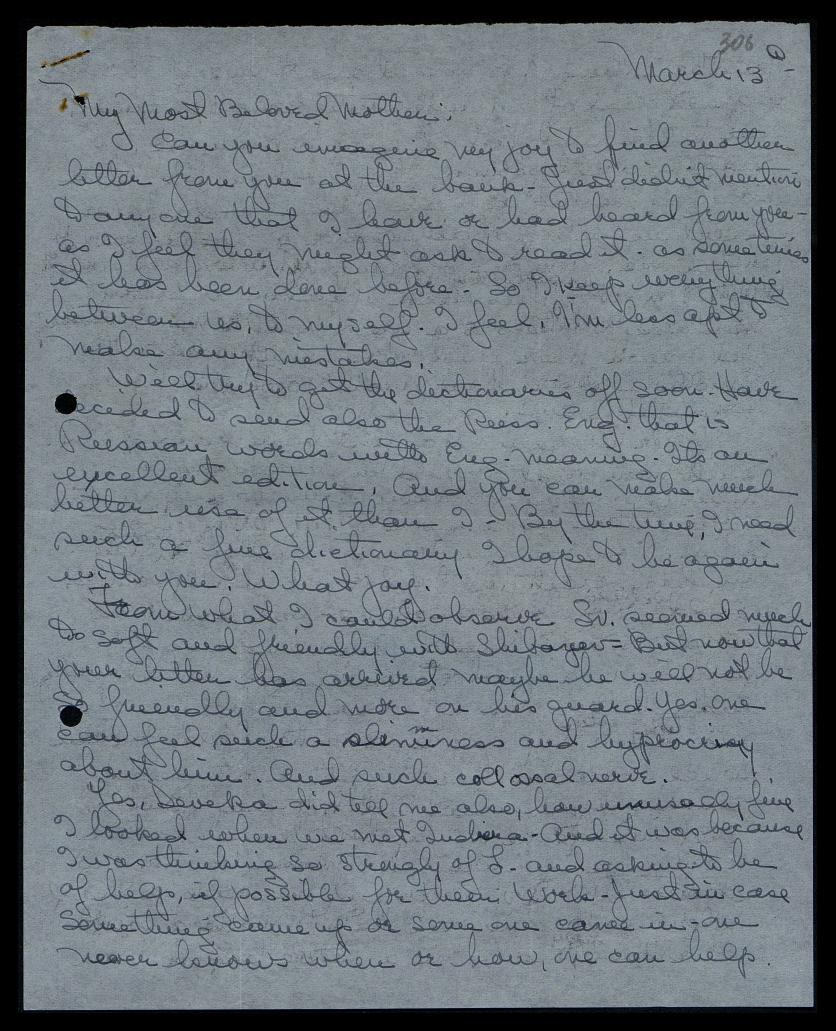 306 ①
March 13 -
My Most Beloved Mother:
Can you imagine my joy to find another
letter from you at the bank - Just didn't mention
to any one that I have or had heard from you -
as I feel they might ask to read it. as sometimes
it has been done before - So I keep everything
between us, to myself. I feel, I'm less apt to
make any mistakes.
Will try to get the dectionaries off soon. Have
decided to send also the Russ. Eng. that is
Russian words with Eng. meaning. Its an
excellent edition. And you can make much
better use of it than I - By the time, I need
such a fine dictionary I hope to be again
with you. What joy.
From what I could observe Sv. seemed much
to soft and friendly with Shibayev = But now that
your letter has arrived maybe he will not be
So friendly and more on his guard. Yes. one
can feel such a slimminess and hyprocricy
about him. And such collossal nerve.
Yes, Deveka did tell me also, how unusally fine
I looked when we met Indira - And it was because
I was thinking so strongly of F. and asking to be
of help, if possible for their Work - Just in case
Something came up or some one came in - one
never knows when or how, one can help.